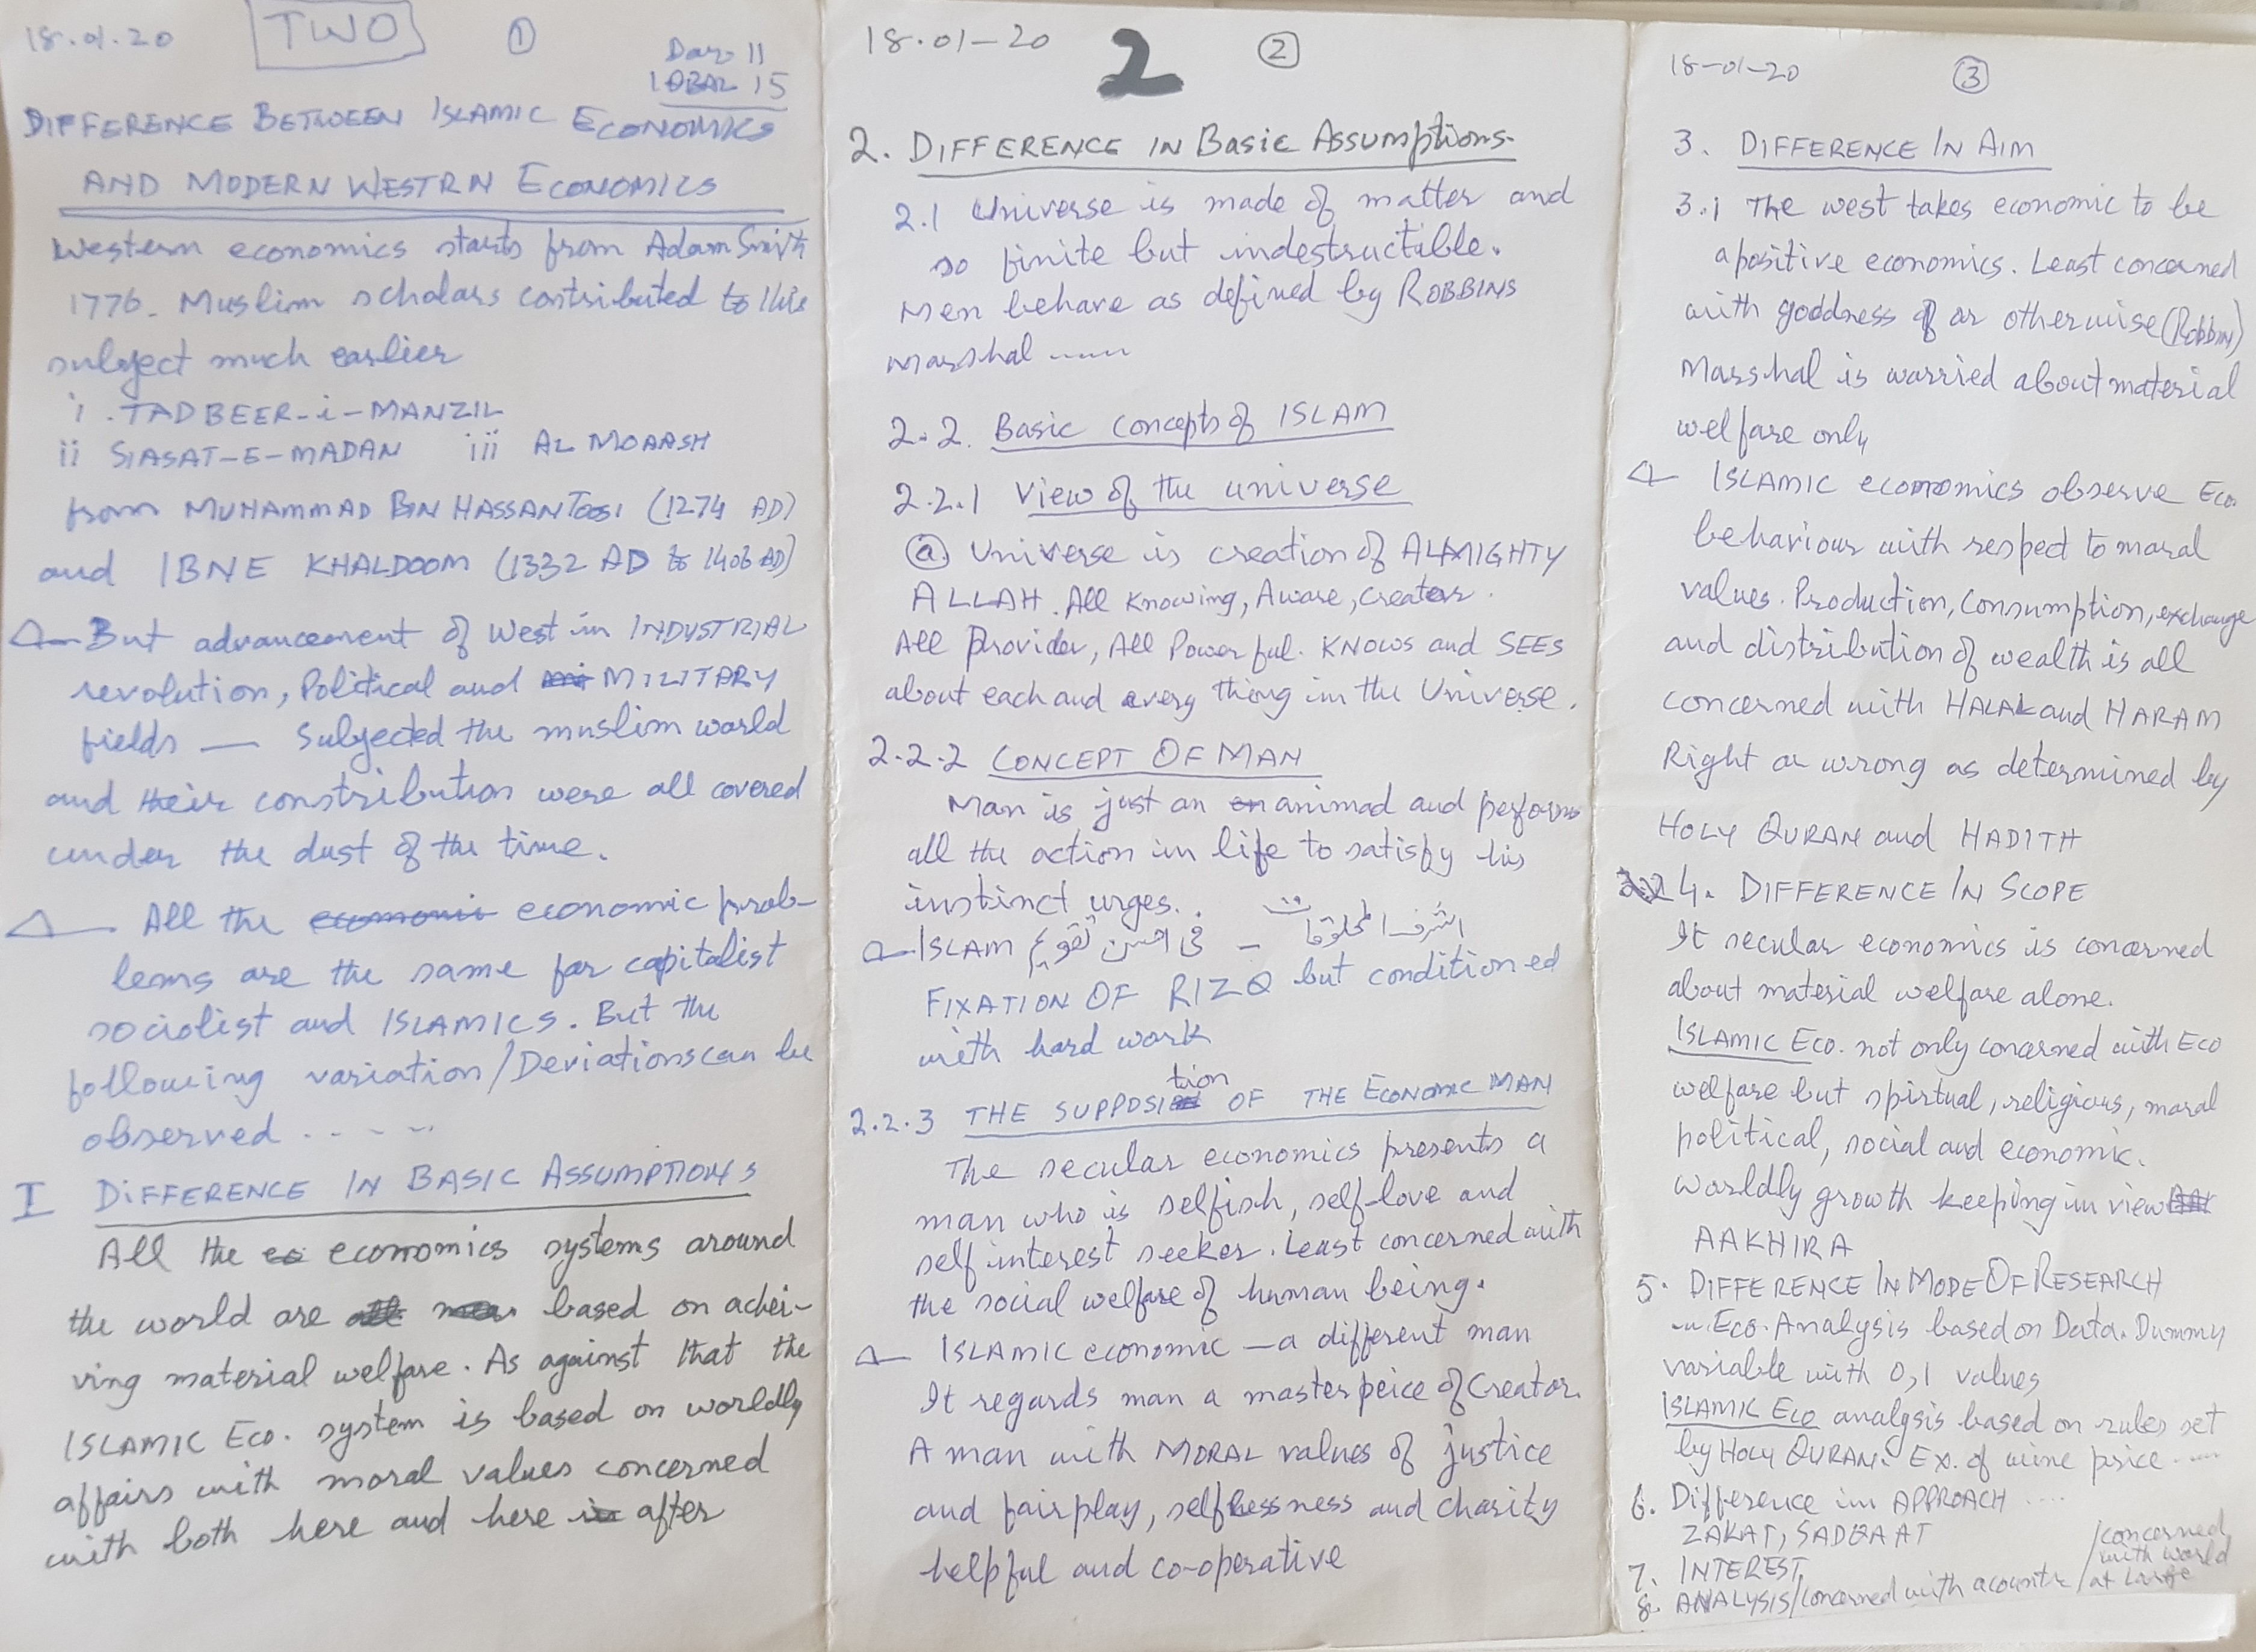 18.01.20
TWO
1
Dar 11
IQBAL 15
DIFFERENCE BETWEEN ISLAMIC ECONOMICS
AND MODERN WESTRN ECONOMICS
Western economics starts from Adam Smith
1776. Muslim scholars contributed to this
subject much earlier
i. TADBEER-i-MANZIL
ii SIASAT-E-MADAN iii AL MOAASH
from MUHAMMAD BIN HASSAN TOOSI (1274 AD)
and IBNE KHALDOOM (1332 AD to 1406 AD)
But advancement of West in INDUSTRIAL
revolution, Political and MILITARY
fields — Subjected the muslim world
and their constribution were all covered
under the dust of the time.
All the economic economic prob-
lems are the same for capitalist
sociolist and ISLAMICS. But the
following variation/Deviations can be
observed .....
I DIFFERENCE IN BASIC ASSUMPTIONS
All the economics systems around
the world are based on achei-
ving material welfare. As against that the
ISLAMIC ECO. system is based on worldly
affairs with moral values concerned
with both here and here in after
18.01-20
2
2
2. DIFFERENCE IN Basic Assumptions.
2.1 Universe is made of matter and
so finite but indestructible.
Men behave as defined by ROBBINS
Marshal .....
2.2. Basic concepts of ISLAM
2.2.1 View of the universe
(a) Universe is creation of ALMIGHTY
ALLAH. All Knowing, Aware, creater.
All Provider, All Powerful. KNOWS and SEES
about each and every thing in the Universe.
2.2.2 CONCEPT OF MAN
Man is just an animad and performs
all the action in life to satisfy his
instinct urges.
ISLAM فی احسن تقویم - اشرف المخلوقات
FIXATION OF RIZQ but conditioned
with hard work
2.2.3 THE SUPPOSItion OF THE ECONOMIC MAN
The secular economics presents a
man who is selfish, self-love and
self interest seeker. Least concerned with
the social welfare of human being.
ISLAMIC economic — a different man
It regards man a masterpeice of Creator.
A man with MORAL values of justice
and fairplay, selflessness and charity
helpful and co-operative
18-01-20
3
3. DIFFERENCE IN AIM
3.1 The west takes economic to be
a positive economics. Least concerned
with goodness or otherwise (Robbin)
Marshal is worried about material
welfare only
ISLAMIC economics observe Eco.
behaviour with respect to moral
values. Production, Consumption, exchange
and distribution of wealth is all
concerned with HALAL and HARAM
Right or wrong as determined by
HOLY QURAN and HADITH
4. DIFFERENCE IN SCOPE
It secular economics is concerned
about material welfare alone.
ISLAMIC ECO. not only concerned with ECO
welfare but spirtual, religious, moral
political, social and economic.
worldly growth keeping in view
AAKHIRA
5. DIFFERENCE IN MODE OF RESEARCH
Eco. Analysis based on Data. Dummy
variable with 0,1 values
ISLAMIC ECO analysis based on rules set
by HOLY QURAN. Ex. of wine price ....
6. Difference in APPROACH ....
ZAKAT, SADQAAT
7. INTEREST
8. ANALYSIS/concerned with acounts /concerned
with world
at large